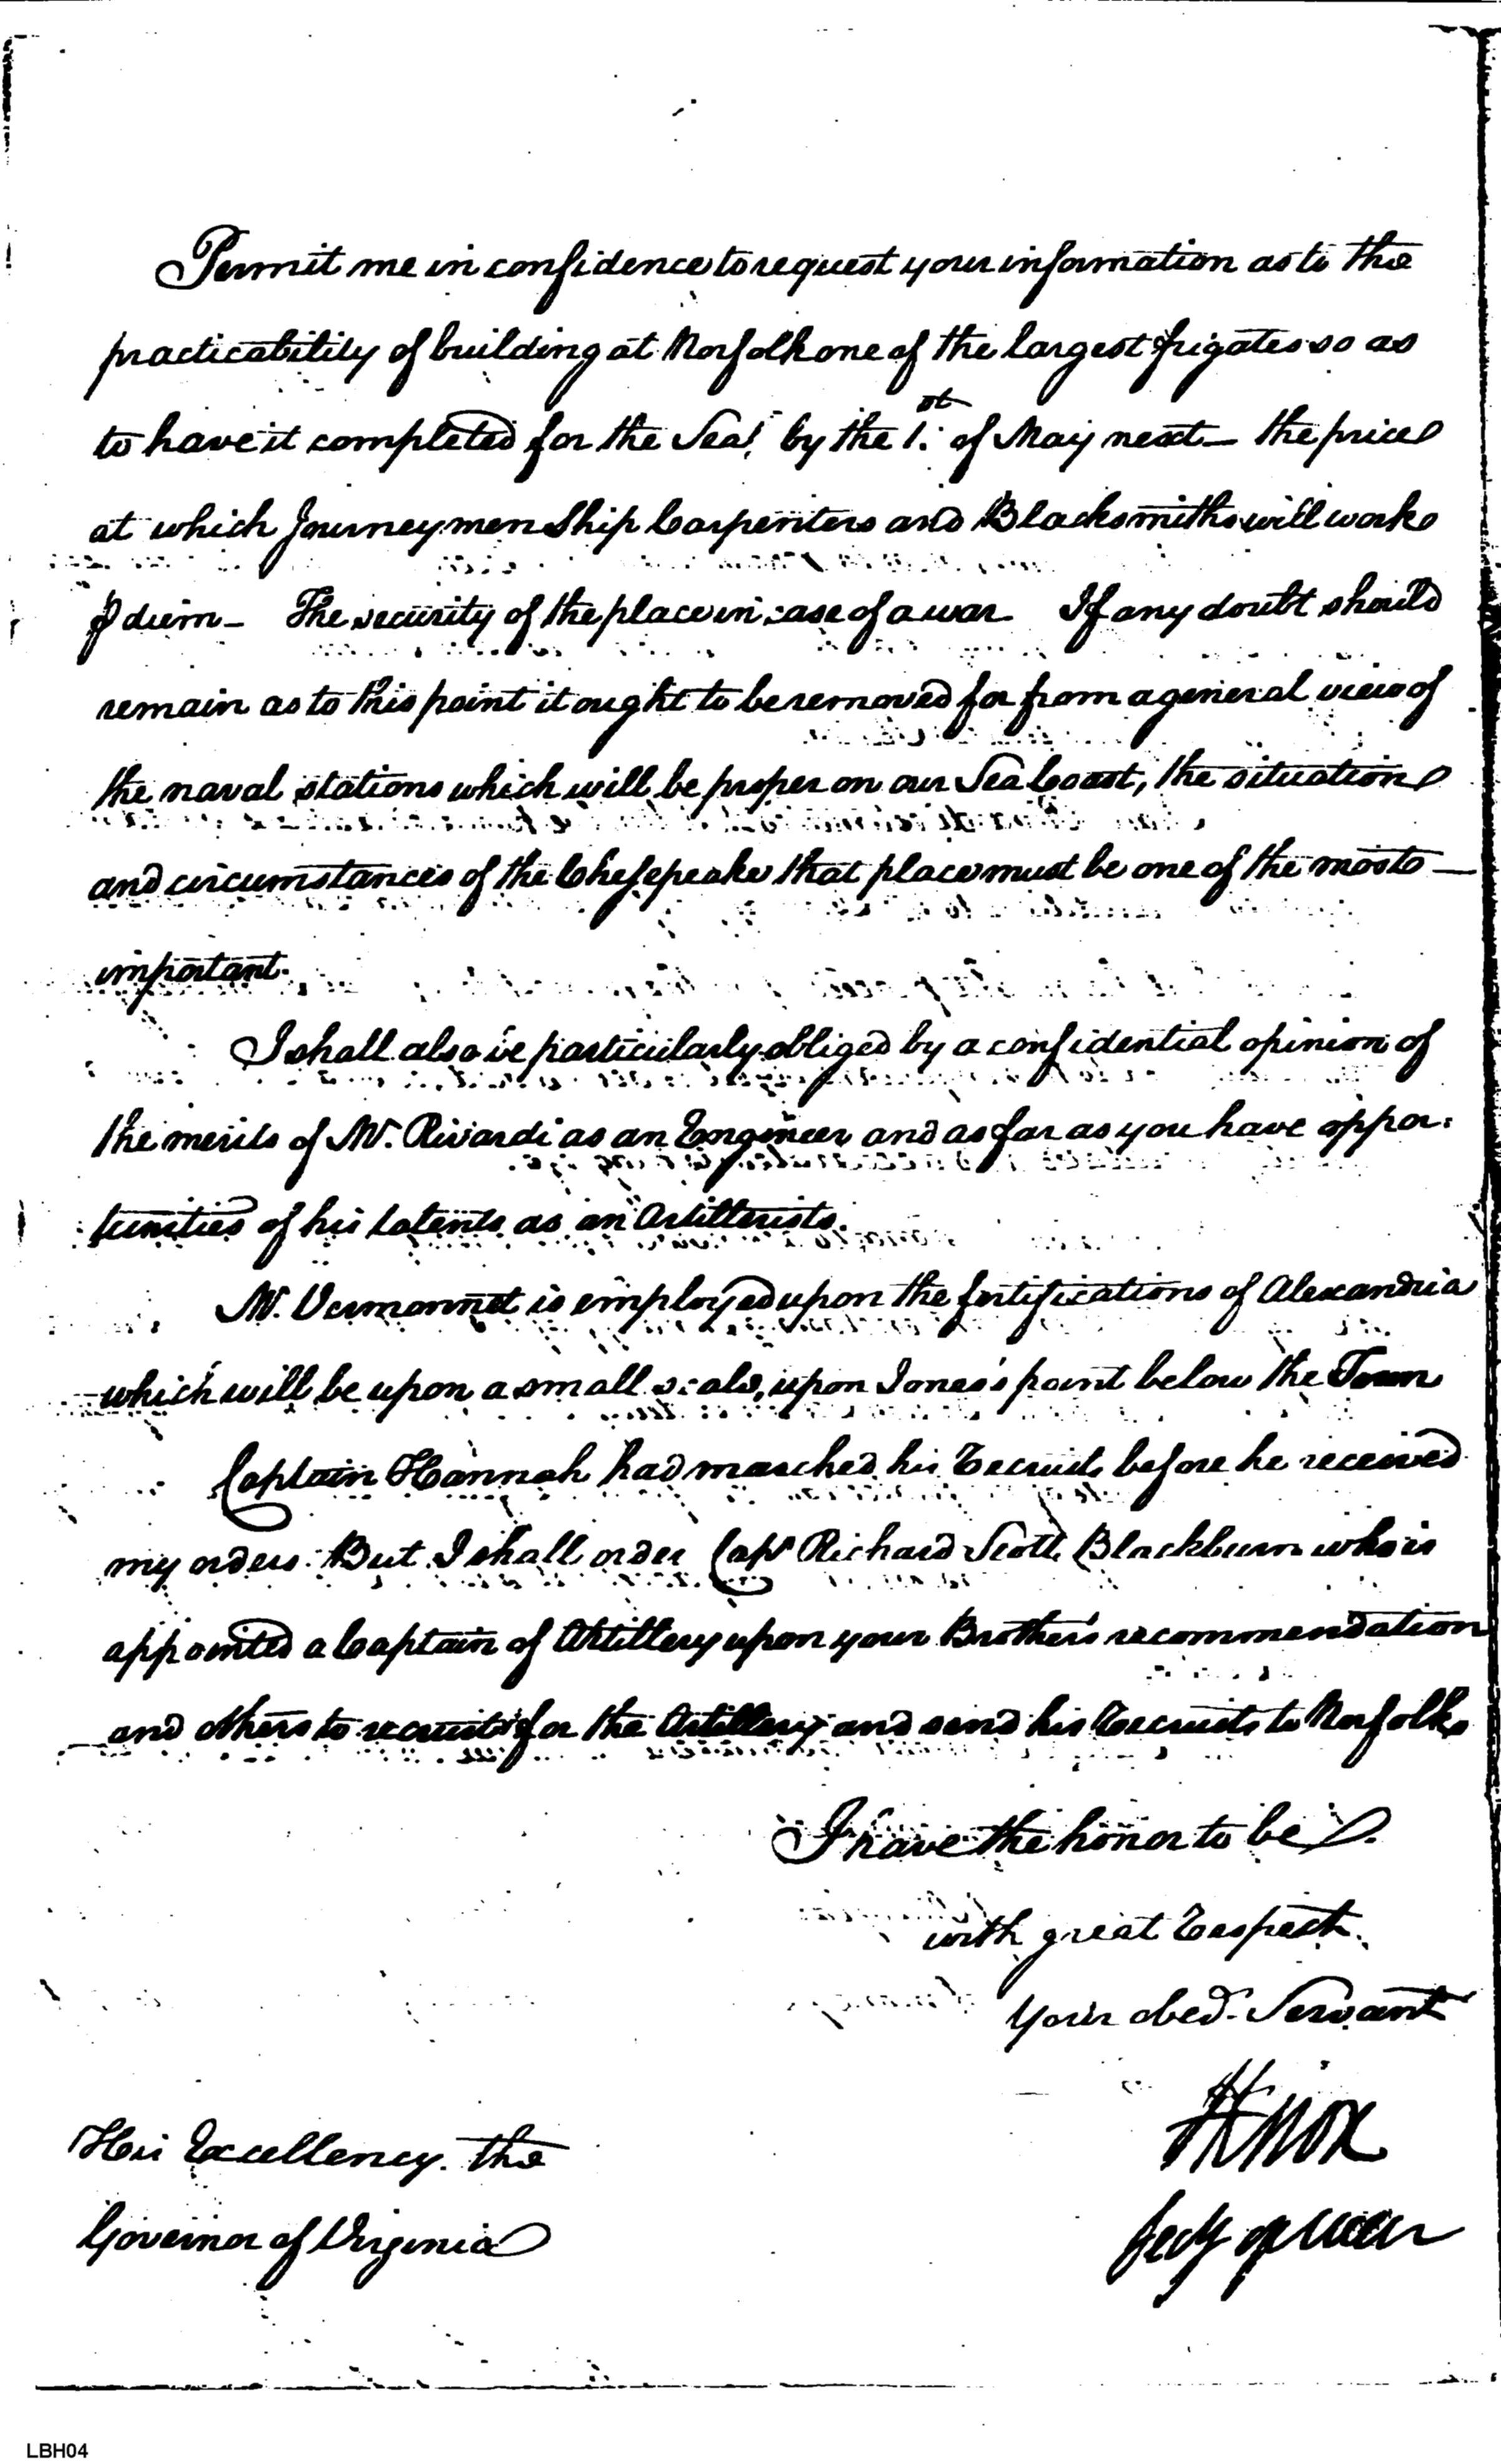 Permit me in confidence to request your information as to the
practicability of building at Norfolk one of the largest frigates so as
to have it completed for the Sea, by the 1st of May next— the price
at which Journeymen Ship Carpenters and Blacksmiths will work
⅌ diem— The security of the place in case of a war. If any doubt should
remain as to this point it ought to be removed for from a general view of
the naval stations which will be proper on our Sea Coast, the situation
and circumstances of the Chesepeake that place must be one of the most—
important.
I shall also be particularly obliged by a confidential opinion of
the merits of Mr. Rivardi as an Engineer and as far as you have oppor:
tunities of his talents as an Artillerist.
Mr. Vermonnet is employed upon the fortifications of Alexandria
which will be upon a small scale, upon Jones's point below the Town
Captain Hannah had marched his Recruits before he received
my orders. But I shall order Capt Richard Scott Blackburn who is
appointed a Captain of Artillery upon your Brother's recommendation
and others to recruit for the Artillery and send his Recruits to Norfolk
I have the honor to be
with great Respect.
Your obed. Servant
HKnox
Secy of War
His Excellency the
Governor of Virginia
LBH04